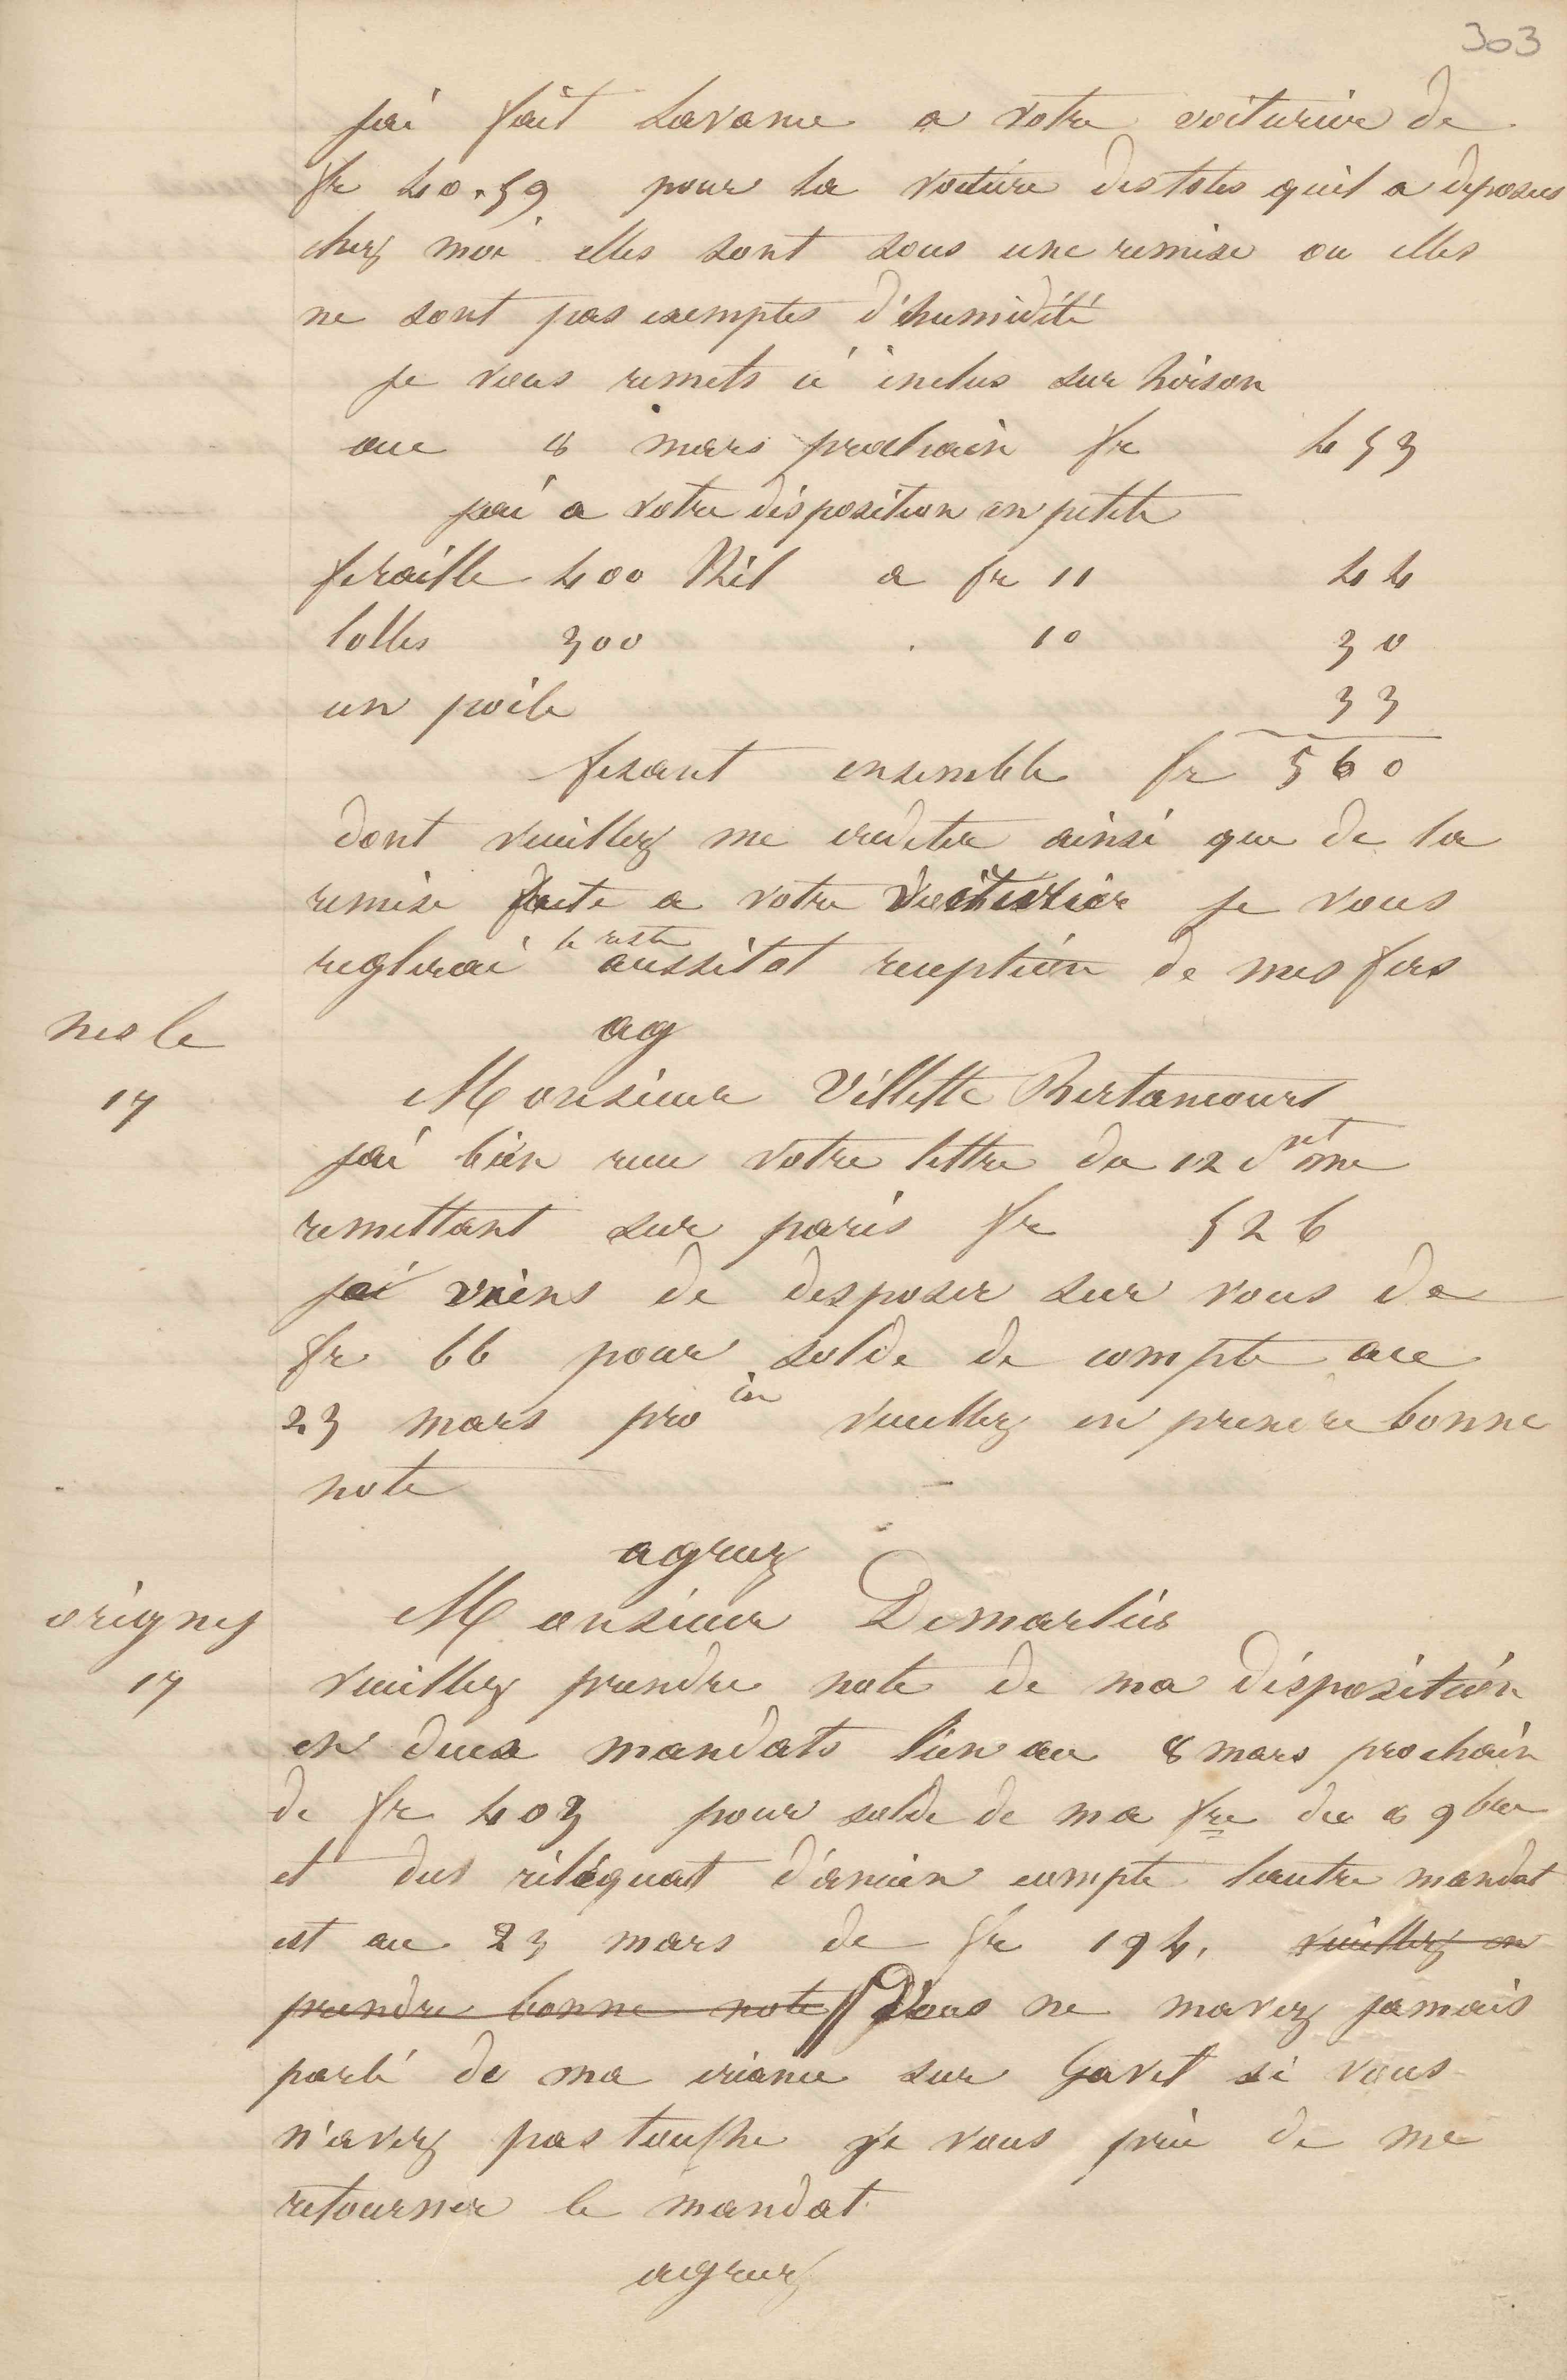 303
jai fait lavance a votre voiturier de
fr 40.59 pour la voiture des toles quil a deposees
chez moi elles sont sous une remise ou elles
ne sont pas exemptes d'humidité
je vous remets ci inclus sur hirson
au 8 mars prochain fr 453
jai a votre disposition en petite
feraille 400 Kil a fr 11 44
tolles 300 . 10 30
un poile 33
fesant ensemble fr 560
dont veuillez me crediter ainsi que de la
remise faite a votre voiturier je vous
reglerai le reste aussitot reception de mes fers
ag
nesle
17
Monsieur Villette Bertancourt
jai bien recu votre lettre du 12 ct me
remettant sur paris fr 526
je viens de desposer sur vous de
fr 66 pour solde de compte au
23 mars pro in veuillez en prendre bonne
note
agreez
origny
17
Monsieur Demarlier
veuillez prendre note de ma disposition
en deux mandats l'un au 8 mars prochain
de fr 403 pour solde de ma fre du 8 9bre
et du réliquat d'ancien compte lautre mandat
est au 23 mars de fr 194. veuillez en
prendre bonne note // Vous ne mavez jamais
parlé de ma criance sur Gavet si vous
n'avez pas touche je vous prie de me
retourner le mandat
agreez